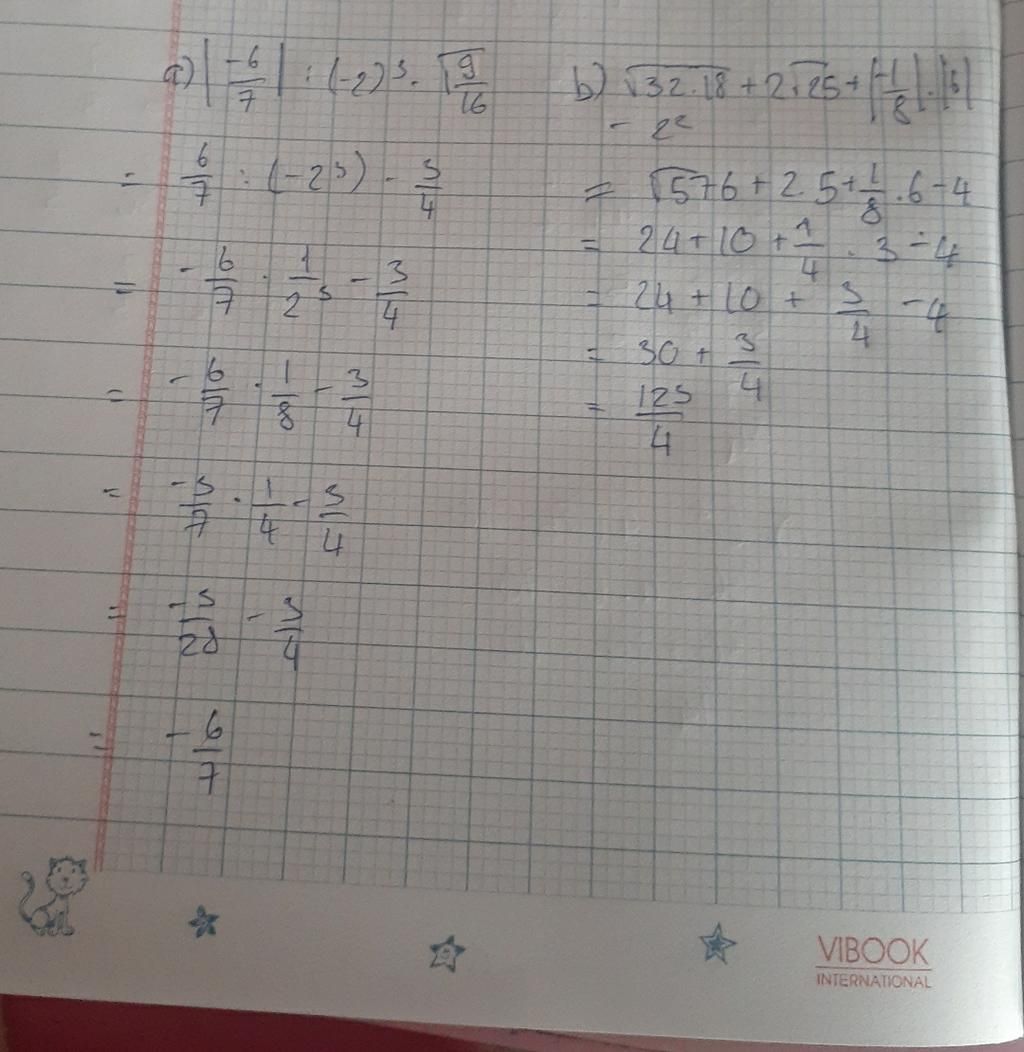 a) |-6/7| : (-2)³ · √9/16
= 6/7 : (-2³) - 3/4
= -6/7 · 1/2³ - 3/4
= -6/7 · 1/8 - 3/4
= -3/7 · 1/4 - 3/4
= -3/28 - 3/4
= -6/7
b) √32.18 + 2√25 + |-1/8| . |6|
- 2²
= √576 + 2.5 + 1/8 . 6 - 4
= 24 + 10 + 1/4 . 3 - 4
= 24 + 10 + 3/4 - 4
= 30 + 3/4
= 123/4
VIBOOK
INTERNATIONAL